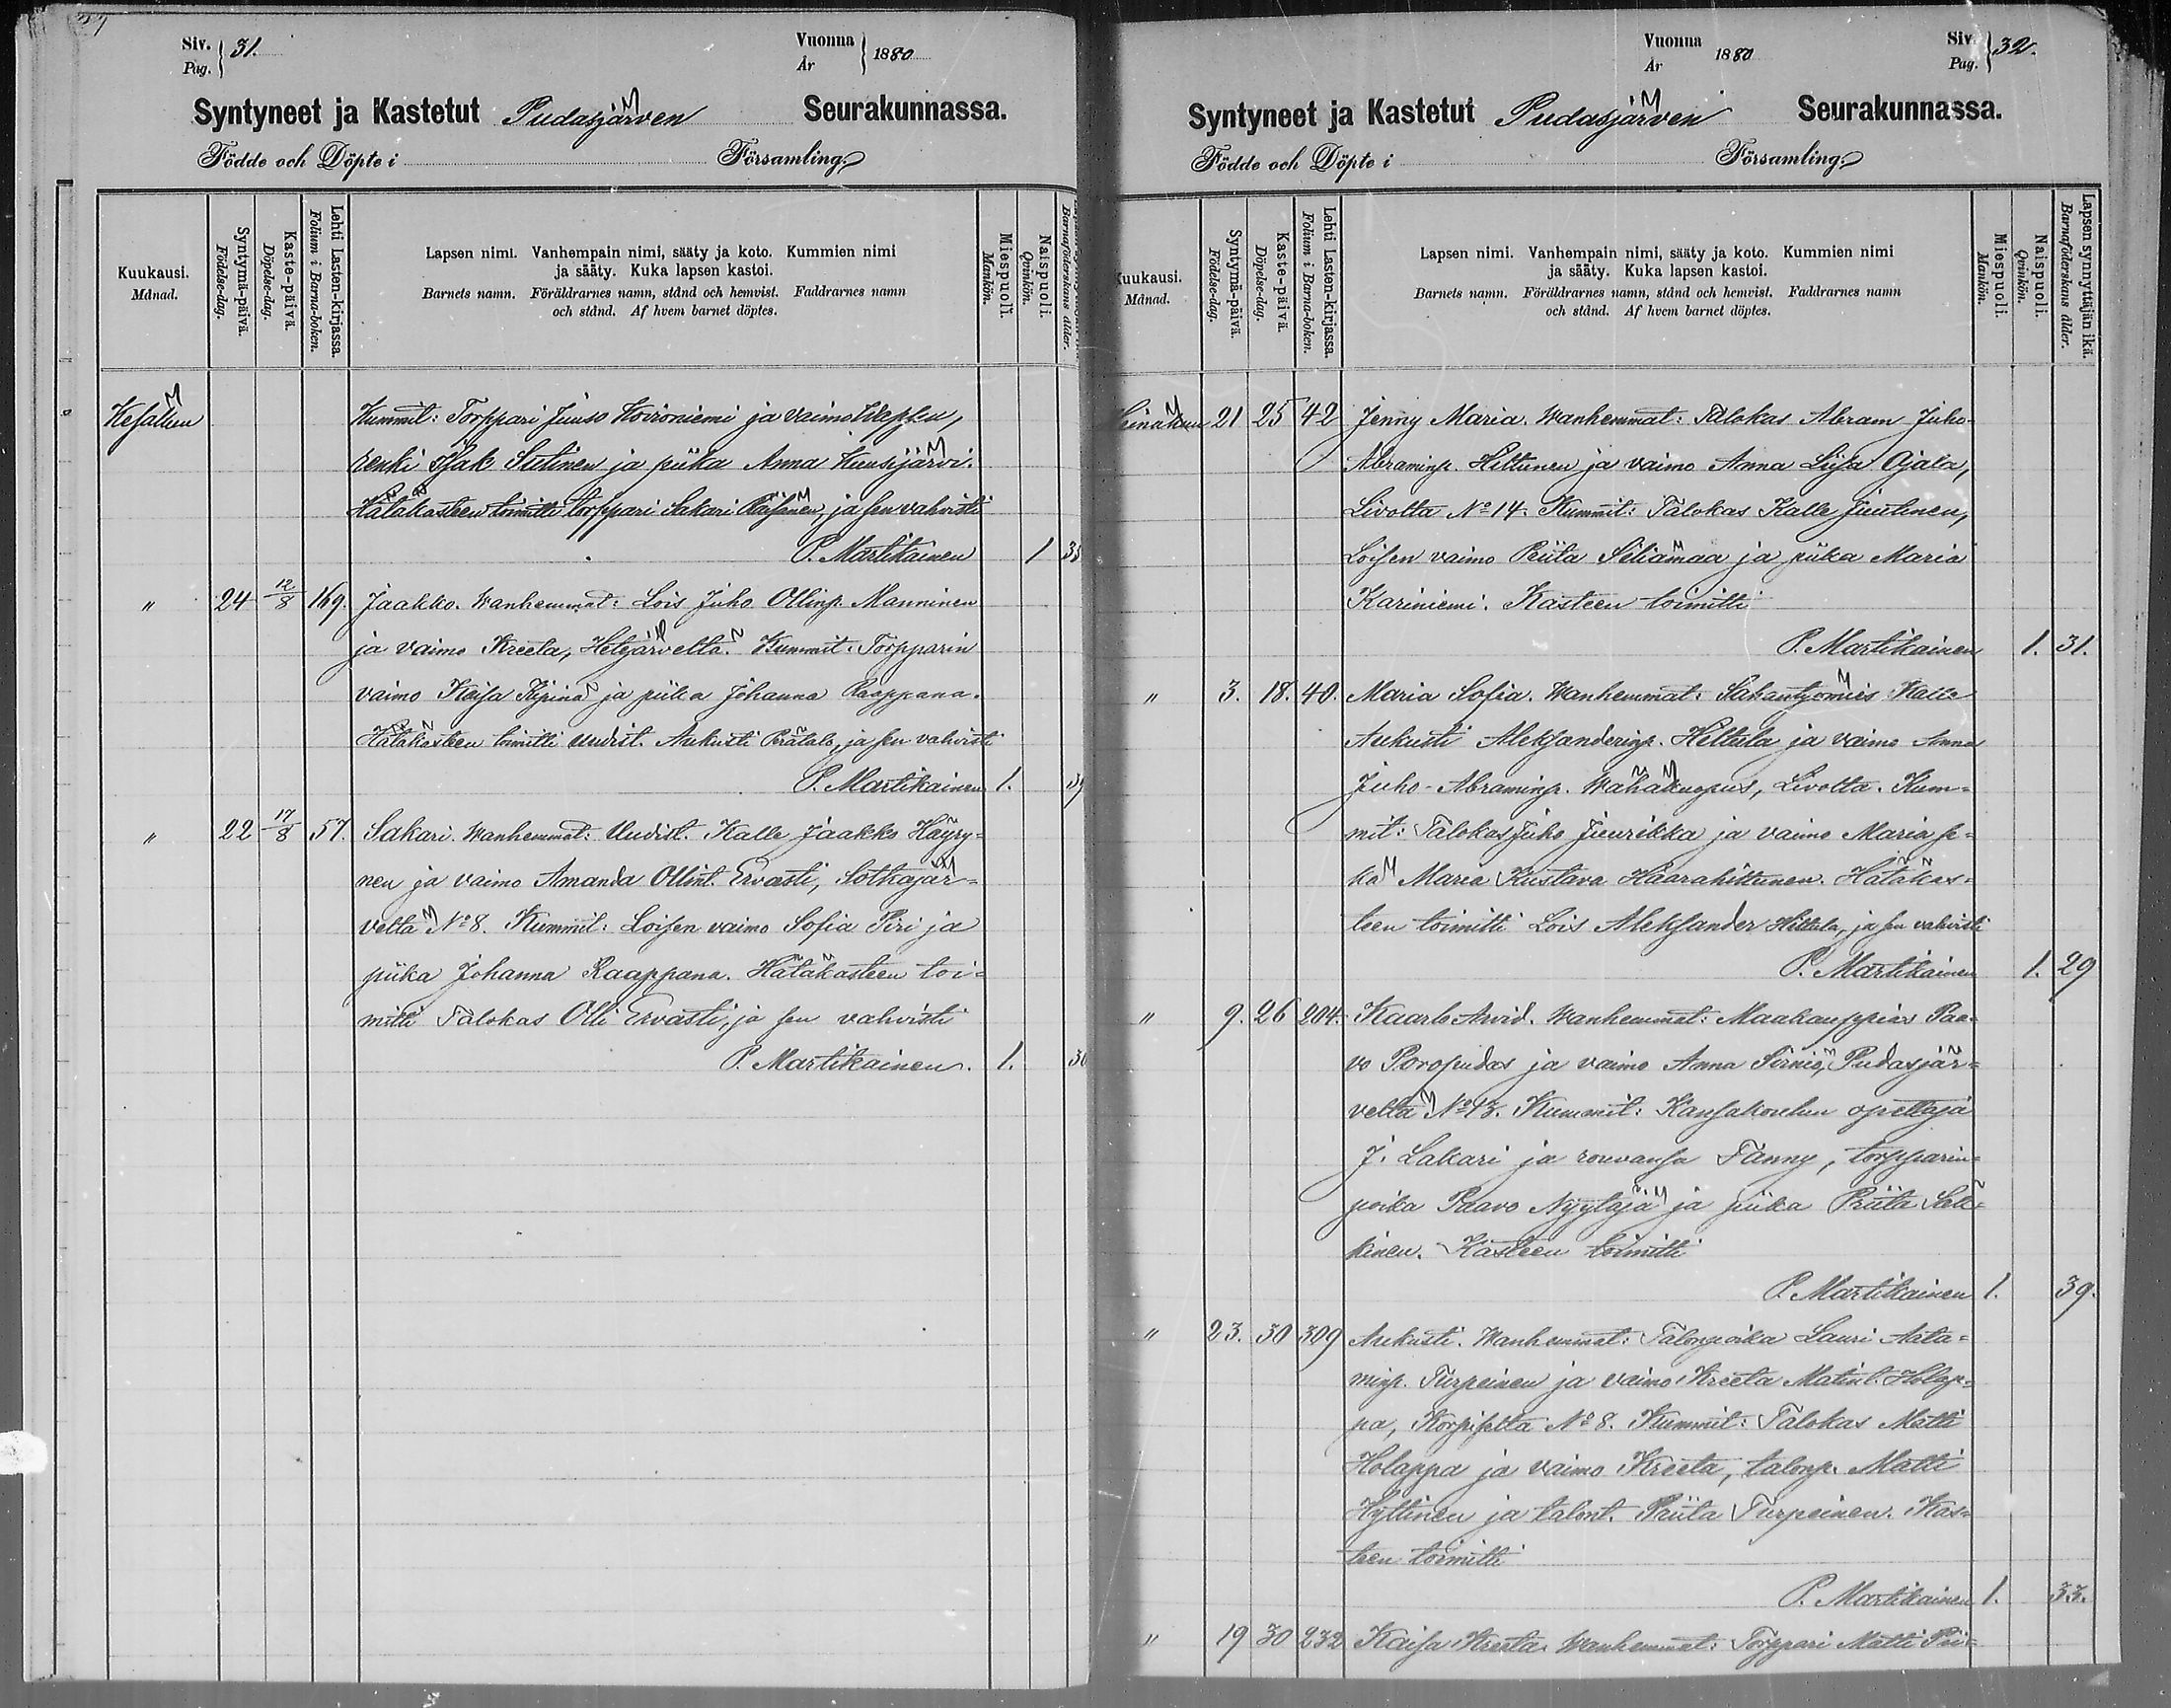 Siv. Pag. } 31.
Vuonna År } 1880
Syntyneet ja Kastetut Pudasjärven Seurakunnassa.
Födde och Döpte i Församling.
Kuukausi. Månad.
Syntymä-päivä. Födelse-dag.
Kaste-päivä. Döpelse-dag.
Lehti Lasten-kirjassa. Folium i Barna-boken.
Lapsen nimi. Vanhempain nimi, sääty ja koto. Kummien nimi
ja sääty. Kuka lapsen kastoi.
Barnets namn. Föräldrarnes namn, stånd och hemvist. Faddrarnes namn
och stånd. Af hvem barnet döptes.
Miespuoli. Mankön.
Naispuoli. Qvinkön.
Barnaföderskans ålder.
Kesäkuu Kummit: Torppari Juuso Koironiemi ja vaimo
renki Isak Sutinen ja piika Anna Kuusijärvi.
Hätäkasteen toimitti torppari Sakari Räisänen, ja sen vahvisti
P. Martikainen 1
" 24 12/8 169. Jaakko. Wanhemmat: Lois Juho Ollinp. Manninen
ja vaimo Kreeta, Hetejärveltä. Kummit: Torpparin
vaimo Kaisa Kipinä ja piika Johanna Raappana.
Hätäkasteen toimitti uudist. Aukusti Perätalo, ja sen vahvisti
P. Martikainen 1.
" 22 17/8 57. Sakari. Wanhemmat: Uudist. Kalle Jaakko Häyry-
nen ja vaimo Amanda Ollint. Ervasti, Sotkajär-
veltä No 8. Kummit: Loisen vaimo Sofia Piri ja
piika Johanna Raappana. Hätäkasteen toi-
mitti Talokas Olli Ervasti, ja sen vahvisti
P. Martikainen. 1.
Vuonna År 1880
Siv. Pag. } 32.
Syntyneet ja Kastetut Pudasjärven Seurakunnassa.
Födde och Döpte i Församling.
Kuukausi. Månad.
Syntymä-päivä. Födelse-dag.
Kaste-päivä. Döpelse-dag.
Lehti Lasten-kirjassa. Folium i Barna-boken.
Lapsen nimi. Vanhempain nimi, sääty ja koto. Kummien nimi
ja sääty. Kuka lapsen kastoi.
Barnets namn. Föräldrarnes namn, stånd och hemvist. Faddrarnes namn
och stånd. Af hvem barnet döptes.
Miespuoli. Mankön.
Naispuoli. Qvinkön.
Lapsen synnyttäjän ikä. Barnaföderskans ålder.
Heinäkuu 21 25 42 Jenny Maria. Wanhemmat: Talokas Abram Juho-
Abraminp. Hiltunen ja vaimo Anna Liisa Ojala,
Livotta No 14. Kummit: Talokas Kalle Juutinen,
Loisen vaimo Priita Siliämaa ja piika Maria
Kariniemi. Kasteen toimitti
P. Martikainen 1. 31.
" 3. 18. 40. Maria Sofia. Wanhemmat: Kalle
Aukusti Aleksanderinp. Hiltula ja vaimo Anna
Juho-Abraminp. Wähäkuopus, Livotta. Kum-
mit: Talokas Juho Jieurikka ja vaimo Maria se-
kä Maria Kustava Haarahiltunen. Hätäkas-
teen toimitti Lois Aleksander Hiltula, ja sen vahvisti
P. Martikainen 1. 29
" 9. 26 204. Kaarlo Arvid. Wanhemmat: Maakauppias Paa-
vo Poropudas ja vaimo Anna Sirniö, Pudasjär-
veltä No 13. Kummit: Kansakoulun opettaja
J. Lakari ja rouvansa Fanny, torpparin-
poika Paavo Nyytäjä ja piika Priita Säk-
kinen. Kasteen toimitti
P. Martikainen 1. 39.
" 23. 30 309 Aukusti. Wanhemmat: Talonpoika Lauri Aata-
minp. Turpeinen ja vaimo Kreeta Matint. Holap-
pa, Korpisilta No 8. Kummit: Talokas Matti
Holappa ja vaimo Kreeta, talonp. Matti
Hyttinen ja talont. Priita Turpeinen. Kas-
teen toimitti
P. Martikainen 1. 33.
" 19 30 232 Kaisa Kreeta. Wanhemmat: Torppari Matti Pii-